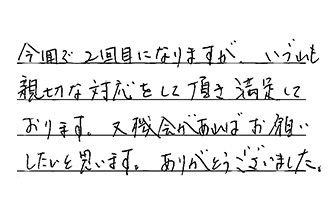 今回で2回目になりますが、いづれも
親切な対応をして頂き満足して
おります。又機会があればお願い
したいと思います。ありがとうございました。